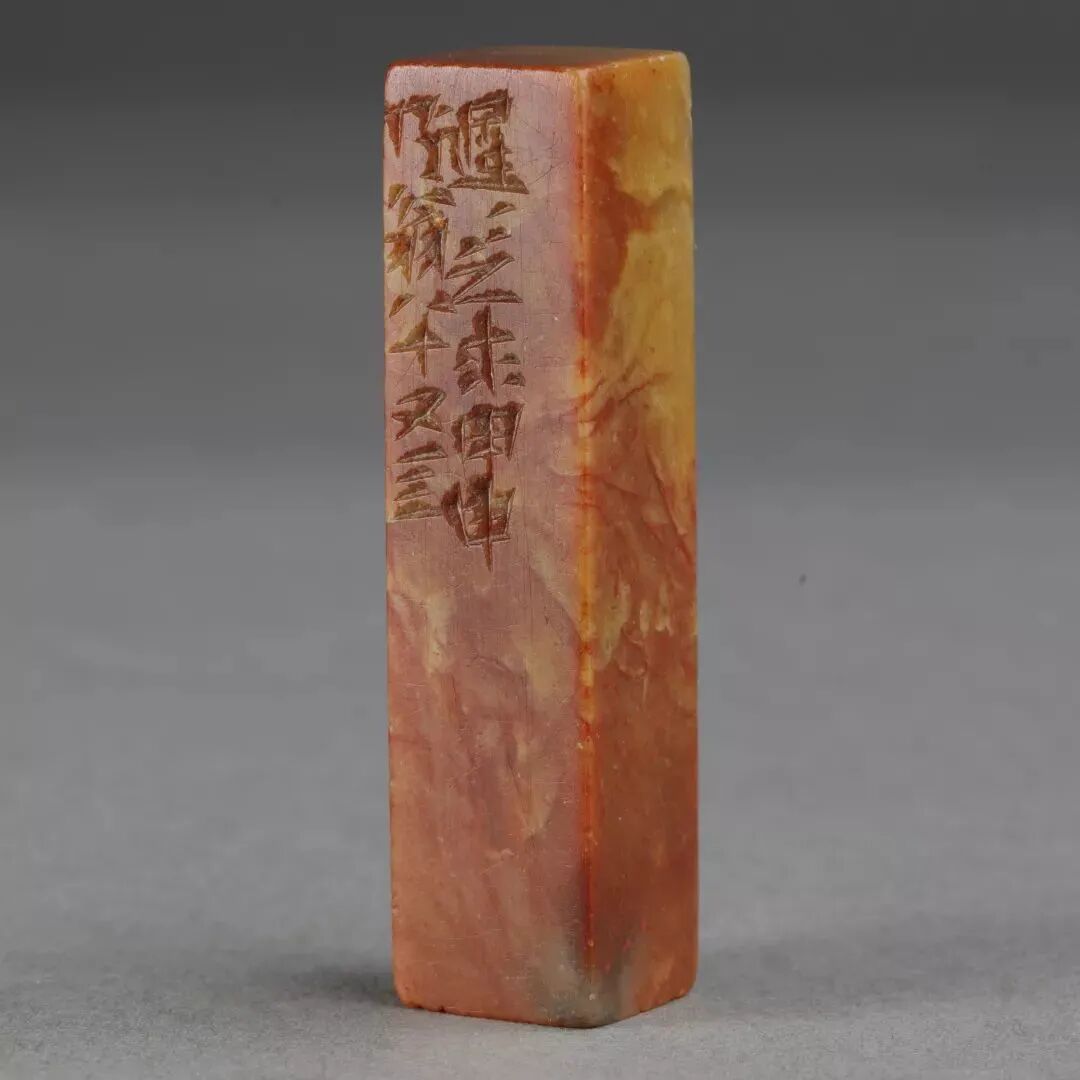 之求甲申
翁八十又三